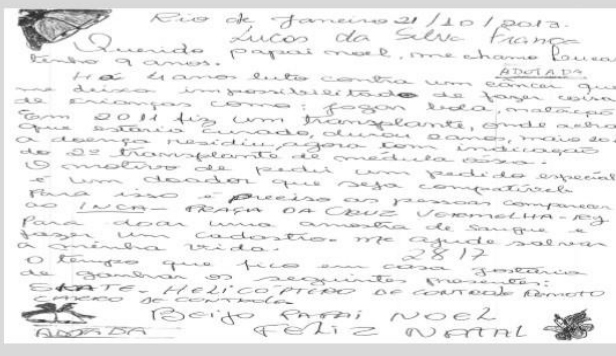 Rio de Janeiro 21/10/2013.
Lucas da Silva França
Querido papai noel, me chamo Lucas
tenho 9 anos.
ADOTADA
Há 4 anos luto contra um câncer que
me deixa impossibilitado de fazer coisas
de crianças como: jogar bola, natação
Em 2011 fiz um transplante, onde achei
que estaria curado, durou 2 anos, mais
a doença residiu, agora tem indicação
do 2º transplante de medula óssea.
O motivo de pedir um pedido especial
é um doador que seja compatível.
Para isso é preciso as pessoas comparecer
ao INCA PRAÇA DA CRUZ VERMELHA - RJ
Para doar uma amostra de sangue e
fazer um cadastro. Me ajude salvar
a minha vida.
2817
O tempo que fico em casa gostaria
de ganhar os seguintes presentes:
SKATE - HELICÓPTERO DE CONTROLE REMOTO
DE CONTROLE
Beijo PAPAI NOEL
ADOTADA
FELIZ NATAL